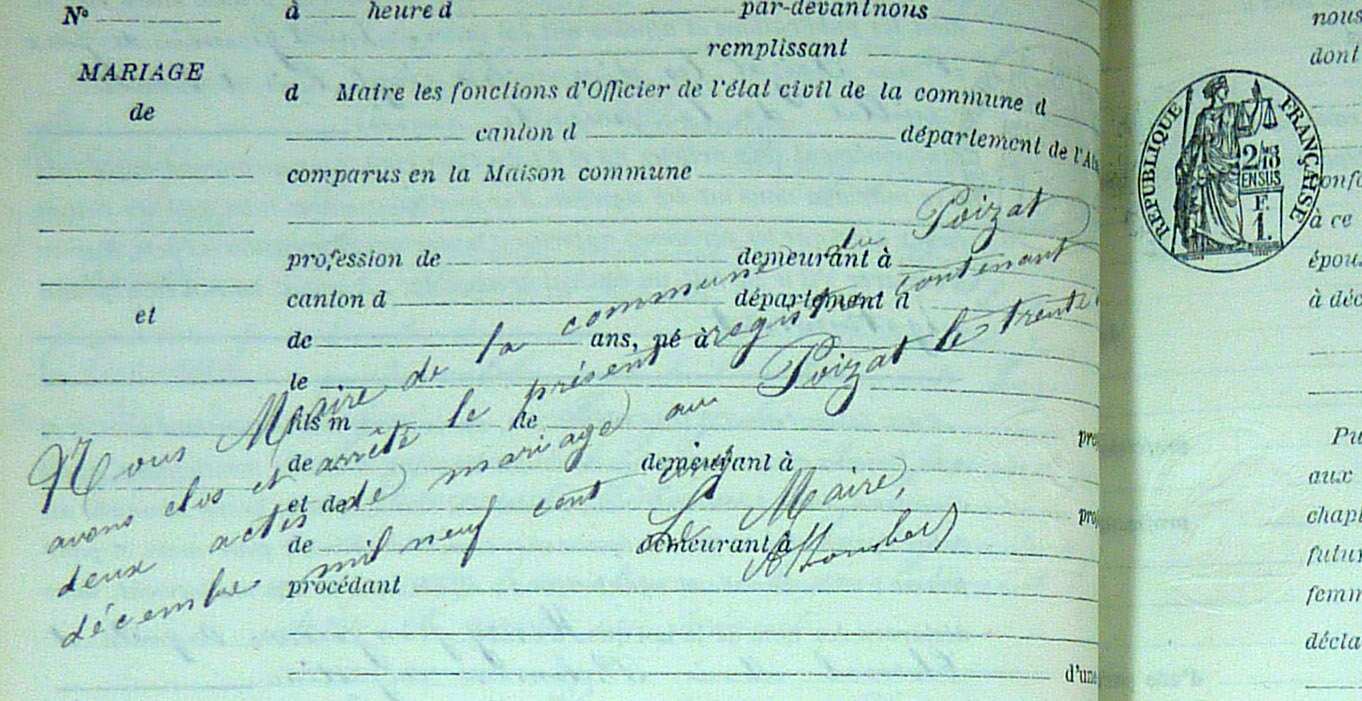 N°
MARIAGE
de
et
à heure d par-devant nous
remplissant
d Maire les fonctions d'Officier de l'état civil de la commune d
canton d département de l'Ain
comparus en la Maison commune
profession de demeurant à
canton d département d
de ans, né à
le
fils m de
de demeurant à
et de
de demeurant à
procédant
d'une
Nous Maire de la commune du Poizat
avons clos et arrêté le présent registre contenant
deux actes de mariage au Poizat le trente
décembre mil neuf cent cinq
Le Maire,
RÉPUBLIQUE FRANÇAISE
2/10
EN SUS
F.
1.
nous
dont
à ce
épou
à déc
Pu
aux
chapi
futur
femm
décla